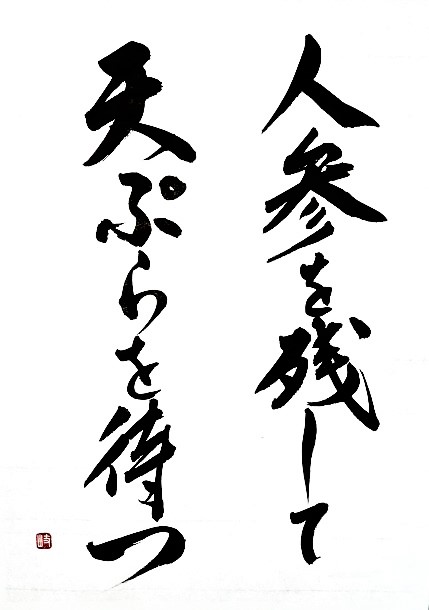 人参を残して
天ぷらを待つ